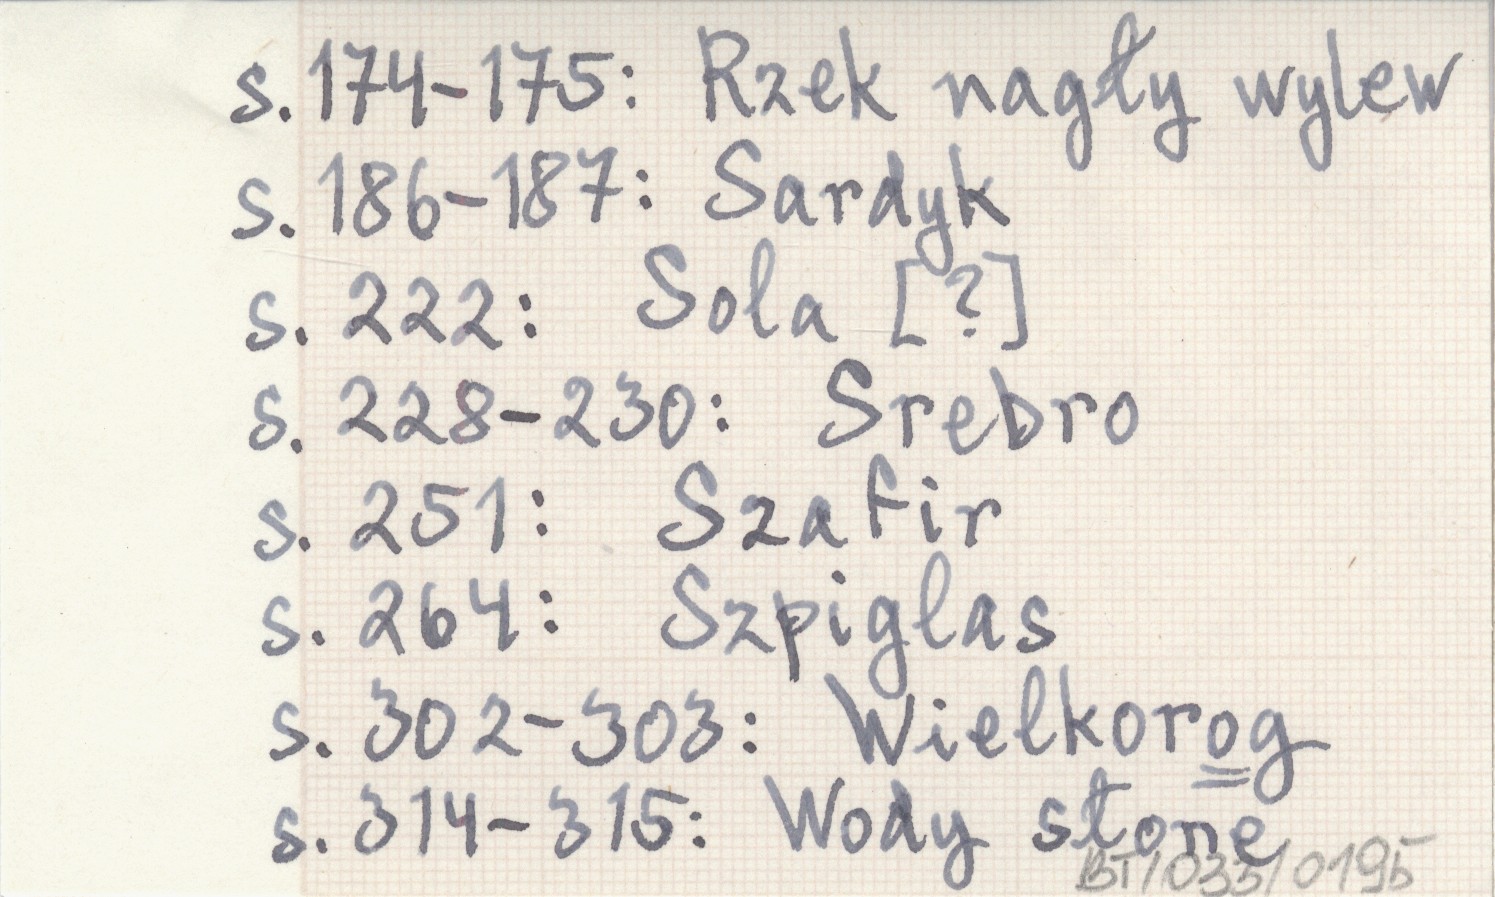 s. 174-175: Rzek nagły wylew
s. 186-187: Sardyk
s. 222: Sola [?]
s. 228-230: Srebro
s. 251: Szafir
s. 264: Szpiglas
s. 302-303: Wielkorog
s. 314-315: Wody słone
BT/033/0195